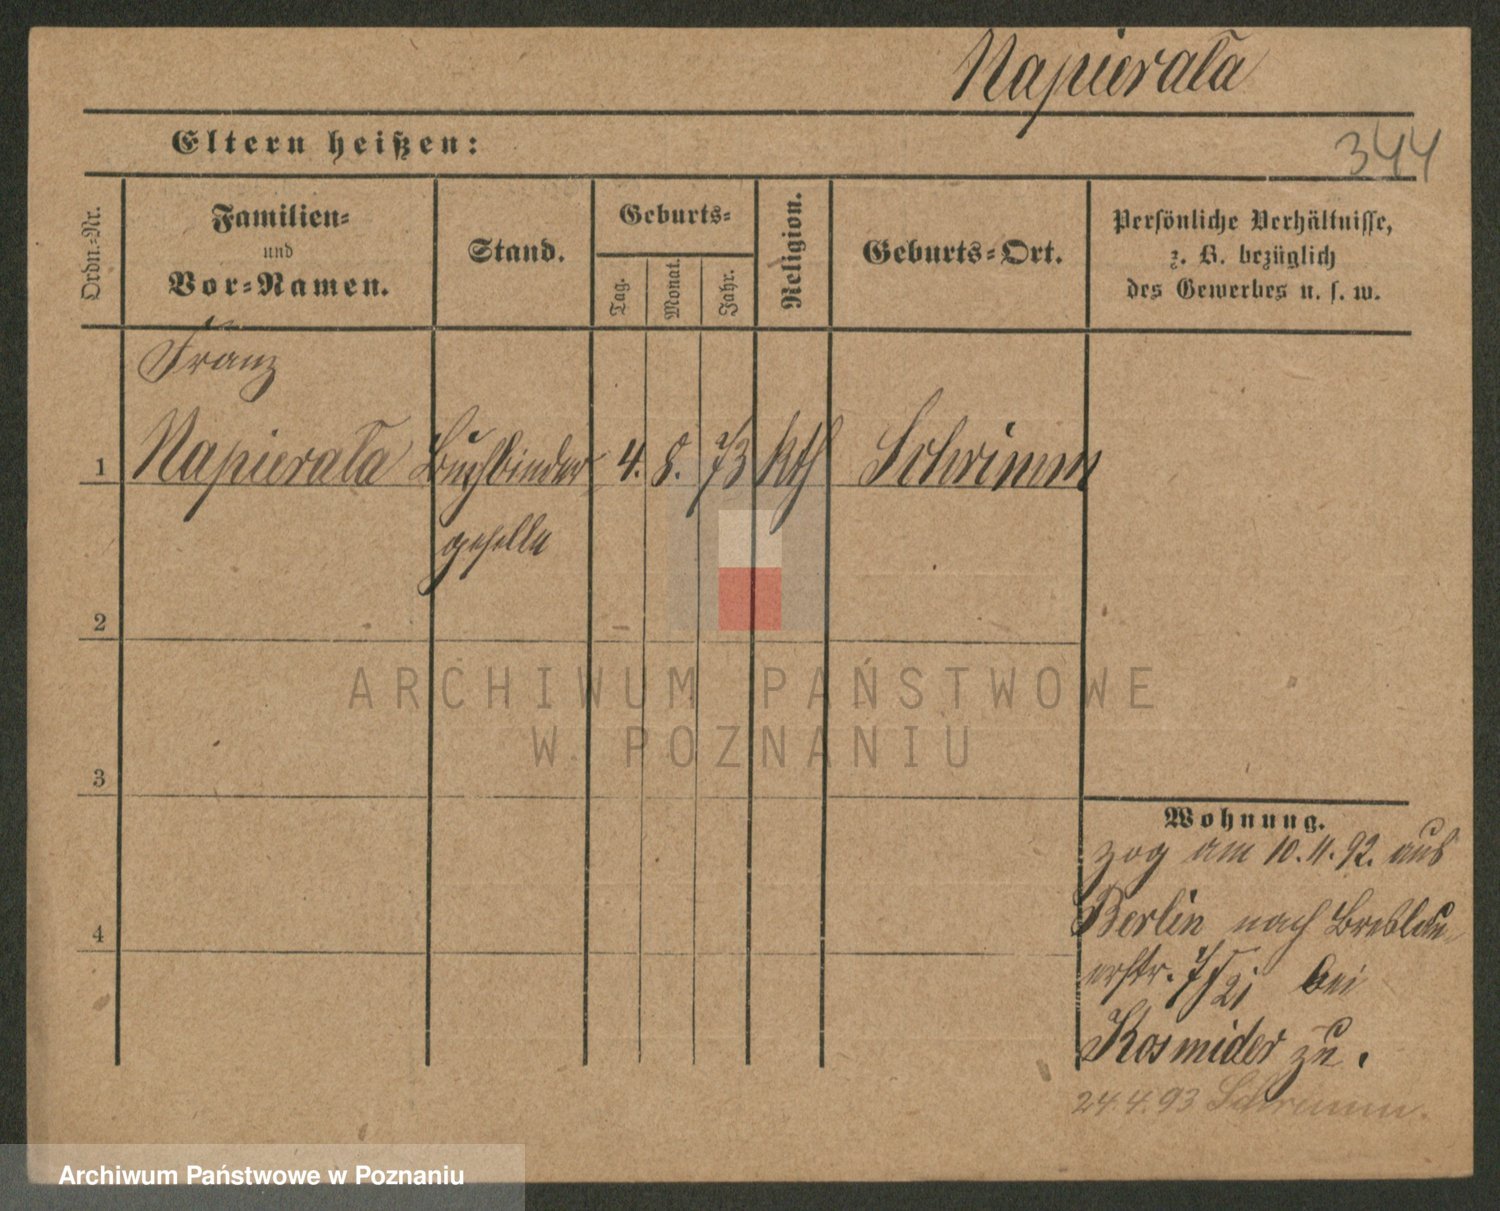 Napierała
344
Eltern heißen:
Ordn.-Nr.
Familien-
und
Vor-Namen.
Stand.
Geburts-
Tag.
Monat.
Jahr.
Religion.
Geburts-Ort.
Persönliche Verhältnisse,
z. B. bezüglich
des Gewerbes u. s. w.
Franz
1 Napierała Buchbinder 4. 8. 73 kth Schrimm
geselle
2
3
4
Wohnung.
zog am 10.11.92. aus
Berlin nach Breslau-
erstr. bei
Kosmider zu.
24.4.93 Schrimm.
ARCHIWUM PAŃSTWOWE
W POZNANIU
Archiwum Państwowe w Poznaniu